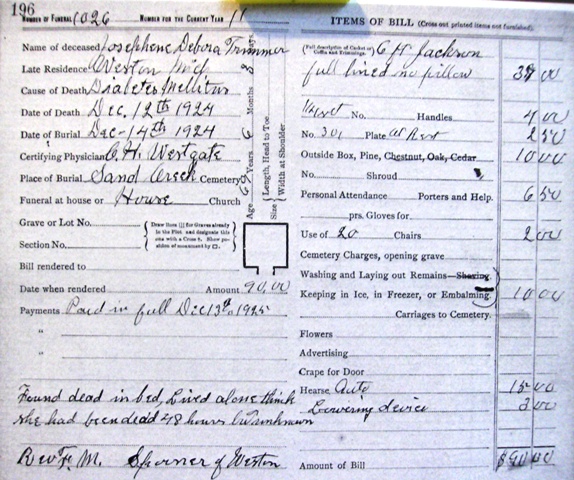 196
NUMBER OF FUNERAL 1026 NUMBER FOR THE CURRENT YEAR 11
Name of deceased Josephene Debora Trimmer
Late Residence Weston
Cause of Death Diabetes Mellitus
Date of Death Dec. 12th 1924
Date of Burial Dec-14th 1924
Certifying Physician C. H. Westgate
Place of Burial Sand Creek Cemetery
Funeral at house or House Church
Grave or Lot No.
Section No.
{ Draw lines for Graves already in the Plot and designate this one with a Cross †. Show position of monument by □. }
Age 69 Years 6 Months 8
Size { Length, Head to Toe
Width at Shoulder
Bill rendered to
Date when rendered Amount 90.00
Payments Paid in full Dec 13th 1925
"
"
Found dead in bed, Lived alone think
she had been dead 48 hours
Rev M. Spooner of Weston
ITEMS OF BILL (Cross out printed items not furnished.)
(Full description of Casket or Coffin and Trimmings) C H Jackson
full lined no pillow 00
No. Handles 4 00
No. 301 Plate At Rest 2 50
Outside Box, Pine, Chestnut, Oak, Cedar 10 00
No. Shroud
Personal Attendance Porters and Help. 6 50
prs. Gloves for
Use of 20 Chairs 2 00
Cemetery Charges, opening grave
Washing and Laying out Remains—Shaving
Keeping in Ice, in Freezer, or Embalming 10 00
Carriages to Cemetery.
Flowers
Advertising
Crape for Door
Hearse Auto 15 00
Lowering device 3 00
Amount of Bill $90 00